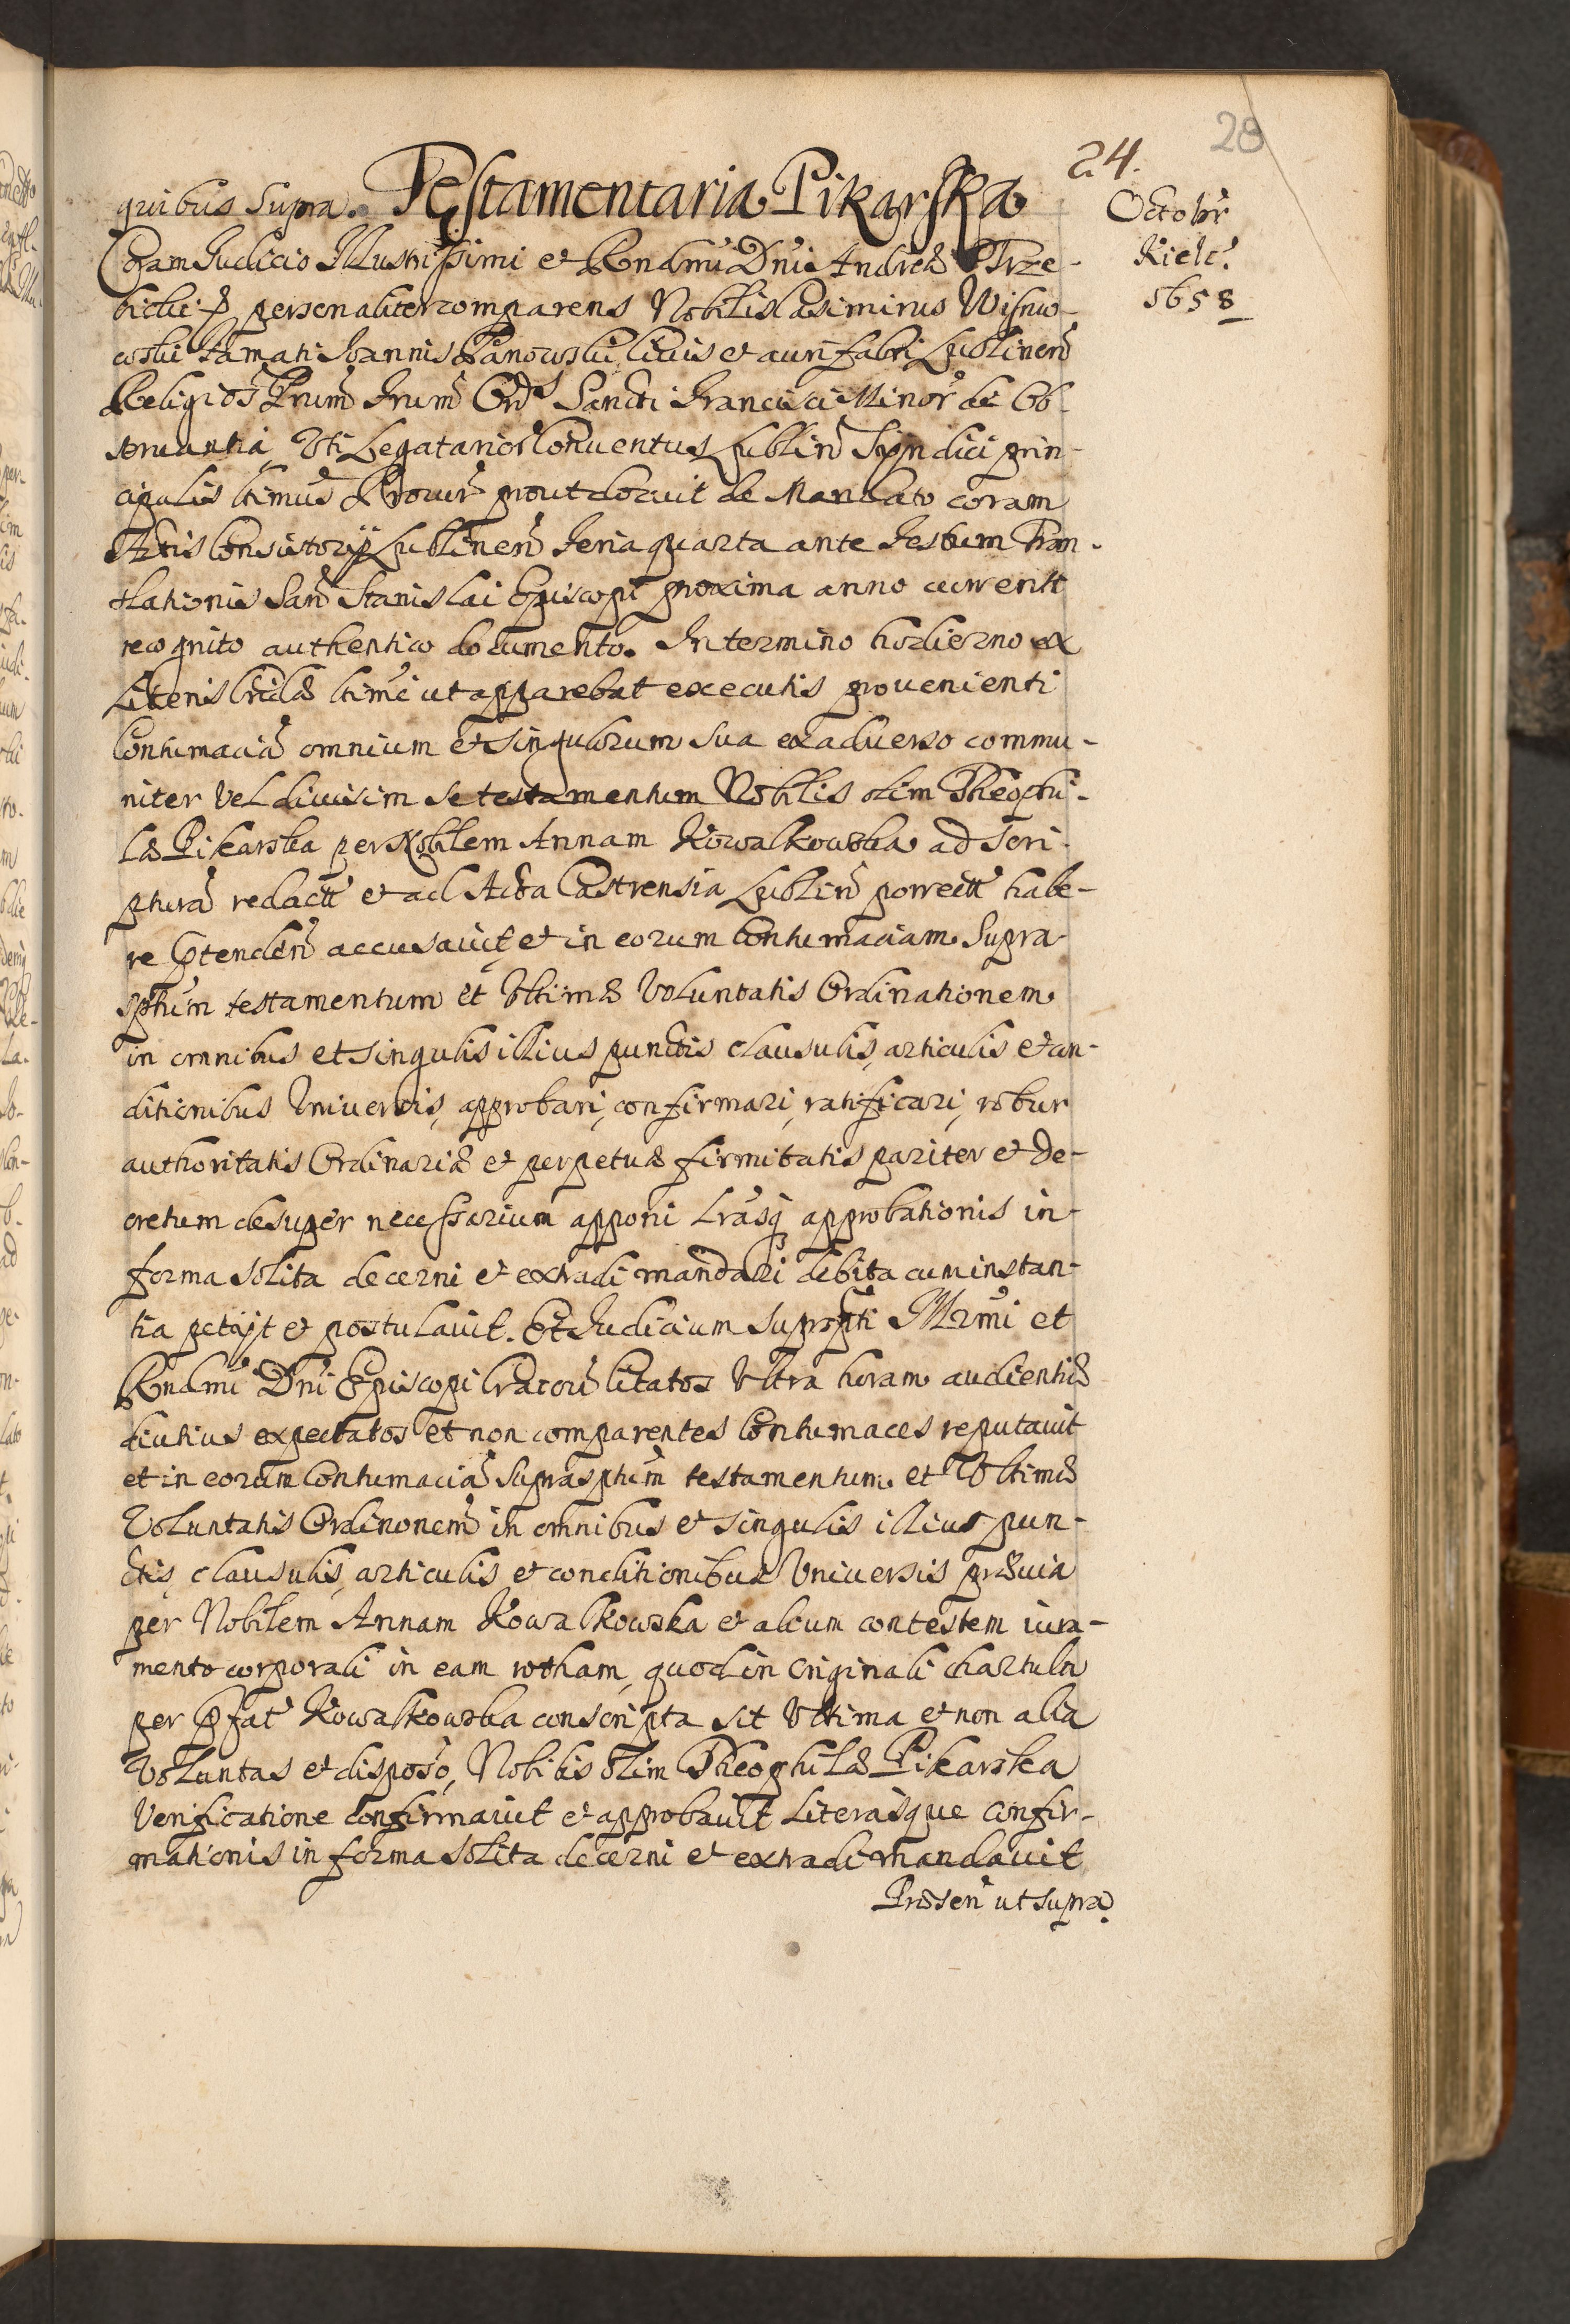 28
24.
Octobr
Kielc.
1658
quibus supra. Testamentaria Pikarska
Coram Judicio Illustrissimi et Rndmi Dni Andreæ Trze-
bicki personaliter comparens Nobilis Casimirus Wisnio-
wski famati Joannis Panowski Civis et aurifabri Lublinen
Religios Prum Frum Ord Sancti Francisci Minor de Ob-
seruantia Uti Legatarior Conuentus Lublin Syndici prin-
cipalis ltimus Procur prout docuit de Mandato coram
Actis Consistorij Lublinen Feria quarta ante Festum Tran-
slationis San Stanislai Episcopi proxima anno currenti
recognito authentico documento. In termino hodierno ex
Literis ltime ut apparebat executis prouenienti
Contumacia omnium et singulorum sua ex aduerso commu-
niter vel diuisim se testamentum Nobilis olim Theophi-
læ Pikarska per Nobilem Annam Kowalkowska ad scri-
ptura redactt et ad Acta Castrensia Lublin porrectt habe-
re ptenden accusauit, et in eorum Contumaciam Supra-
sptum testamentum et Ultimæ Voluntatis Ordinationem
in omnibus et singulis illius punctis clausulis, articulis et con-
ditionibus Uniuersis, approbari, confirmari, ratificari, robur
authoritatis Ordinariæ et perpetuæ firmitatis pariter et de-
cretum desuper necessarium apponi Lrasq approbationis in
forma solita decerni et extradi mandari debita cum instan-
tia petijt et postulauit. Et Judicium suprascpti Illrmi et
Rndmi Dni Episcopi Cracou Citatos Ultra horam audientiæ
diutius expectatos et non comparentes Contumaces reputauit
et in eorum Contumacia suprasptum testamentum et Ultimæ
Voluntatis Ordinonem in omnibus et singulis illius pun-
ctis, clausulis, articulis et conditionibus Uniuersis præuia
per Nobilem Annam Kowalkowska et alium contestem iura-
mento corporali in eam rotham, quod in originali chartula
per pfat Kowalkowska conscripta sit Ultima et non alia
Voluntas et disposo, Nobilis olim Theophilæ Pikarska
Verificatione confirmauit et approbauit Literasque confir-
mationis in forma solita decerni et extradi mandauit
Præsen ut supra